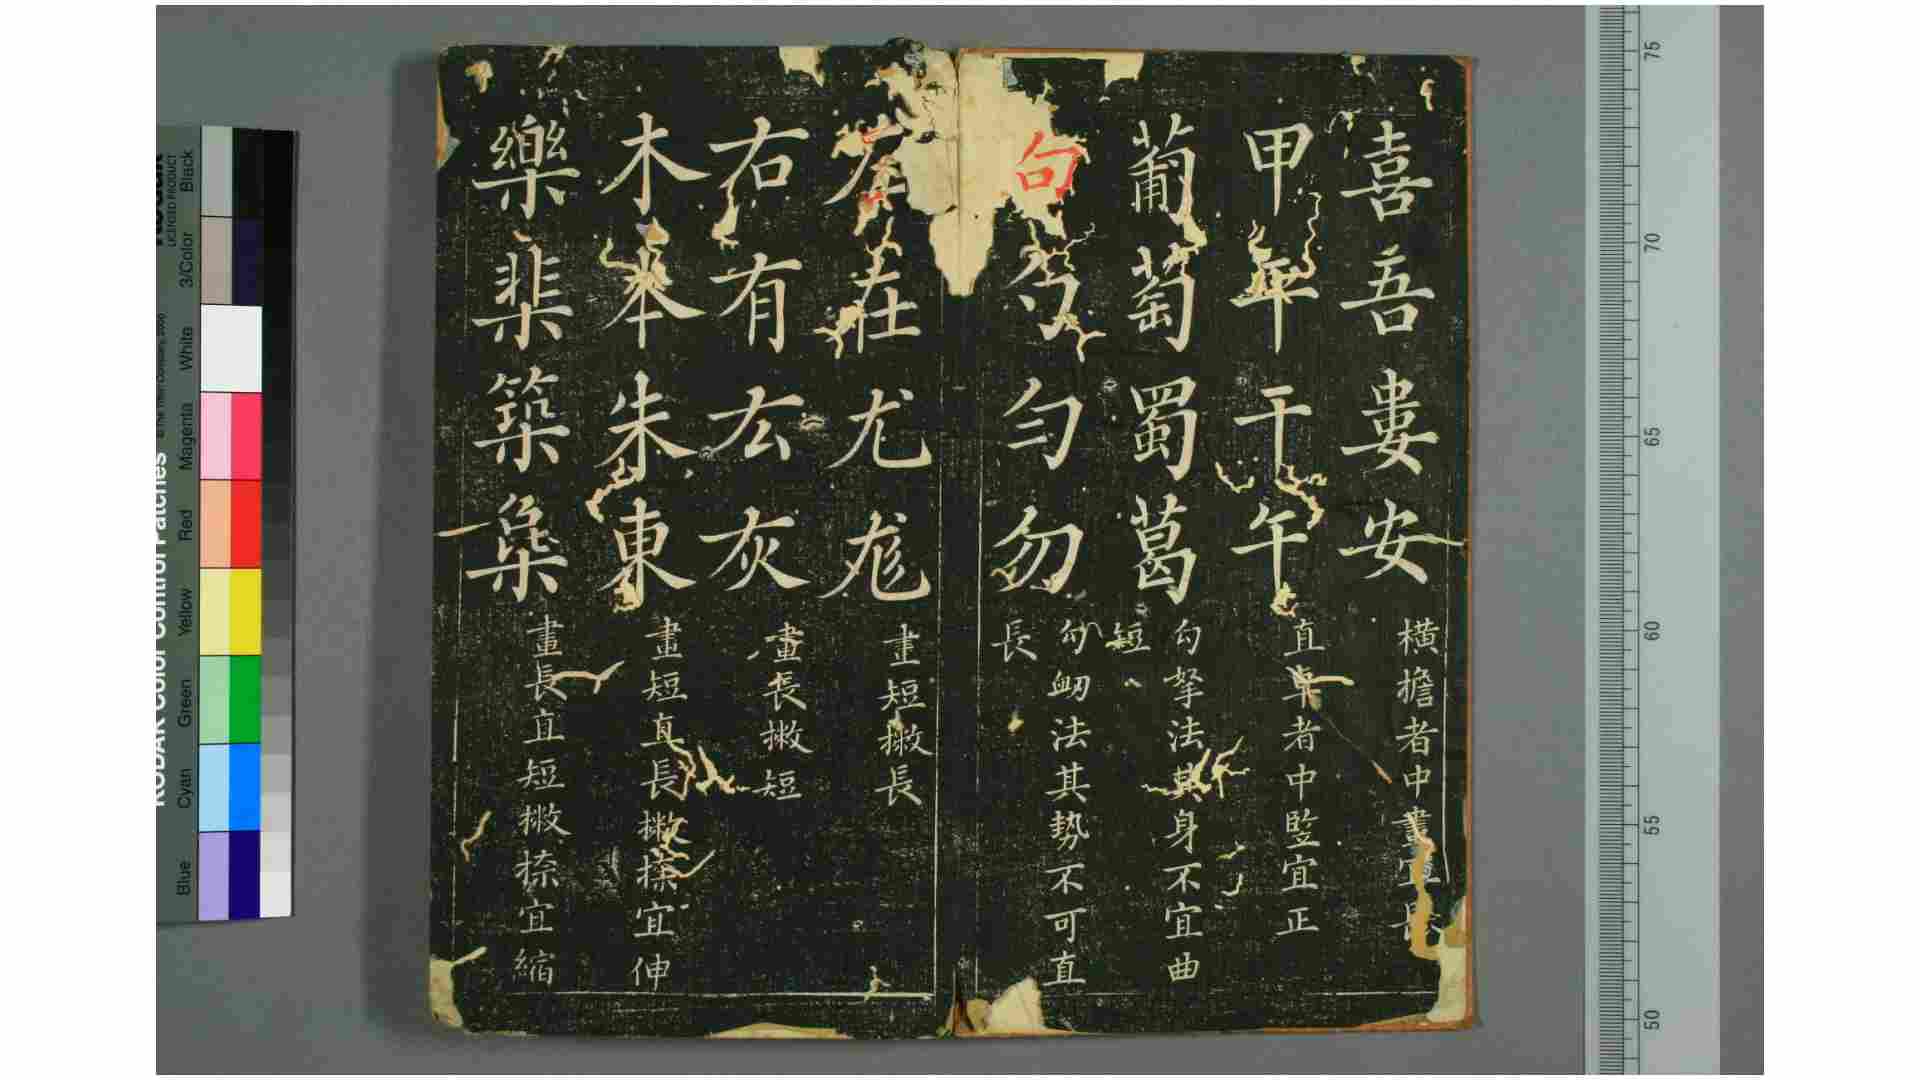 喜吾婁安
橫擔者中畫宜長
甲平干午
直卓者中竪宜正
葡萄蜀葛
勾拏法其身不宜曲
短
句勺勻勿
勾衂法其勢不可直
長
左在尤尨
畫短撇長
右有厷灰
畫長撇短
木本朱東
畫短直長撇捺宜伸
樂棐築
畫長直短撇捺宜縮
KODAK Color Control Patches
LICENSED PRODUCT
Blue
Cyan
Green
Yellow
Red
Magenta
White
3/Color
Black
75
70
65
60
55
50